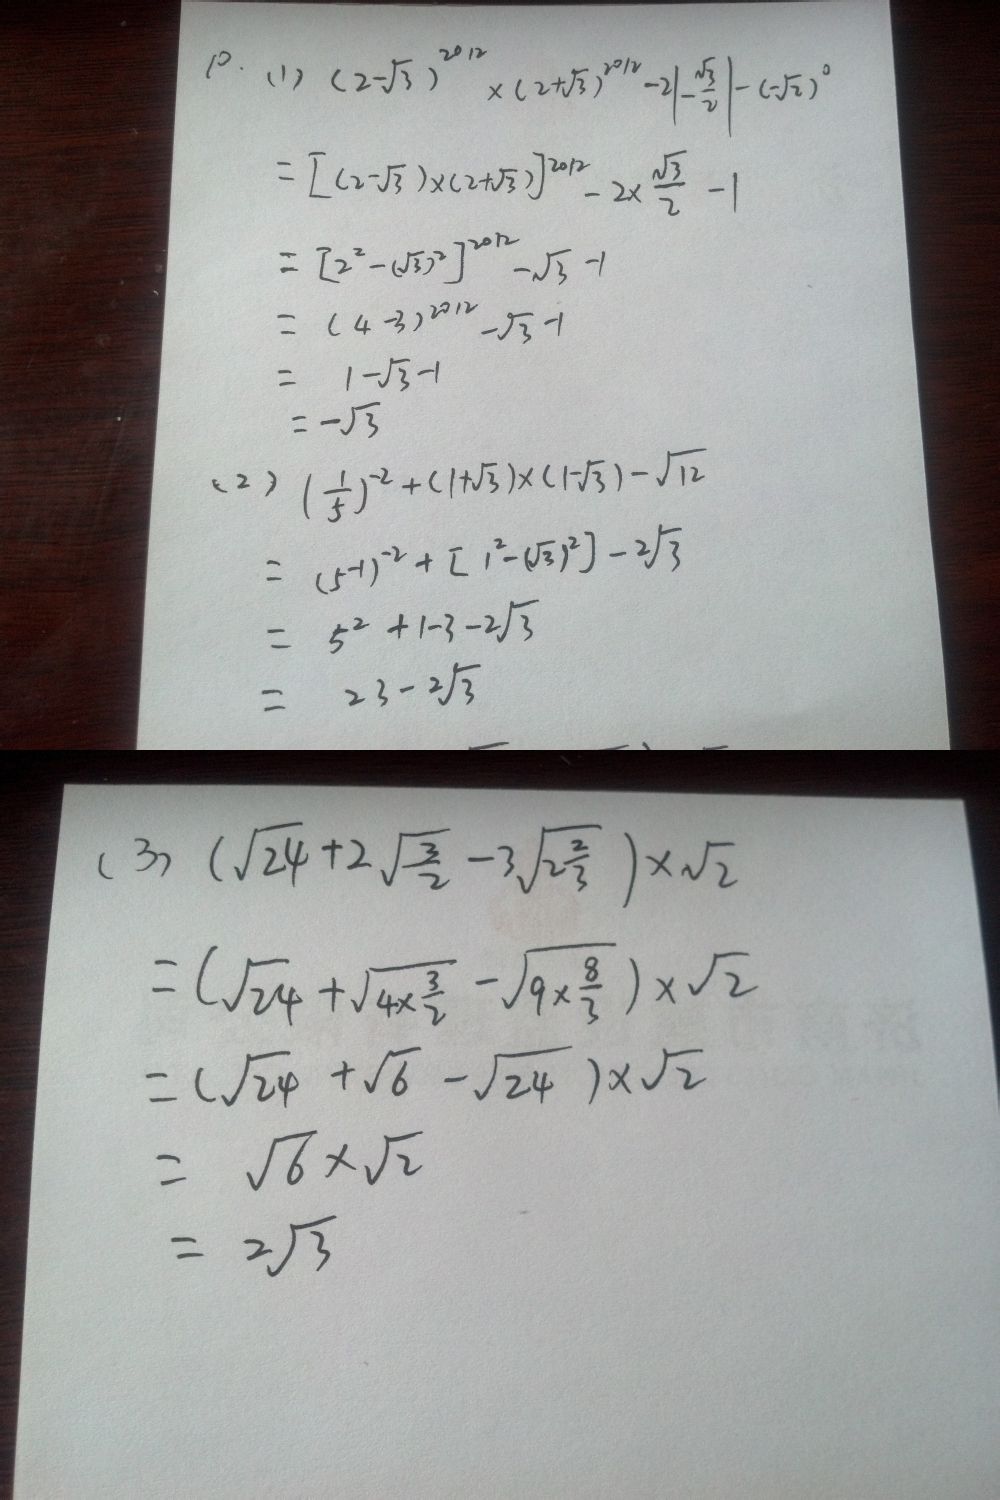 10. (1) (2-√3)^2012 ×(2+√3)^2012 -2|-√3/2| -(-√2)^0
= [(2-√3)×(2+√3)]^2012 - 2×√3/2 -1
= [2²-(√3)²]^2012 -√3 -1
= (4-3)^2012 -√3-1
= 1-√3-1
= -√3
(2) (1/5)^-2 +(1+√3)×(1-√3)-√12
= (5^-1)^-2 + [1²-(√3)²] -2√3
= 5² +1-3-2√3
= 23-2√3
(3) (√24+2√(3/2) -3√(2 2/3))×√2
= (√24 +√(4×3/2) -√(9×8/3))×√2
= (√24 +√6 -√24)×√2
= √6×√2
= 2√3